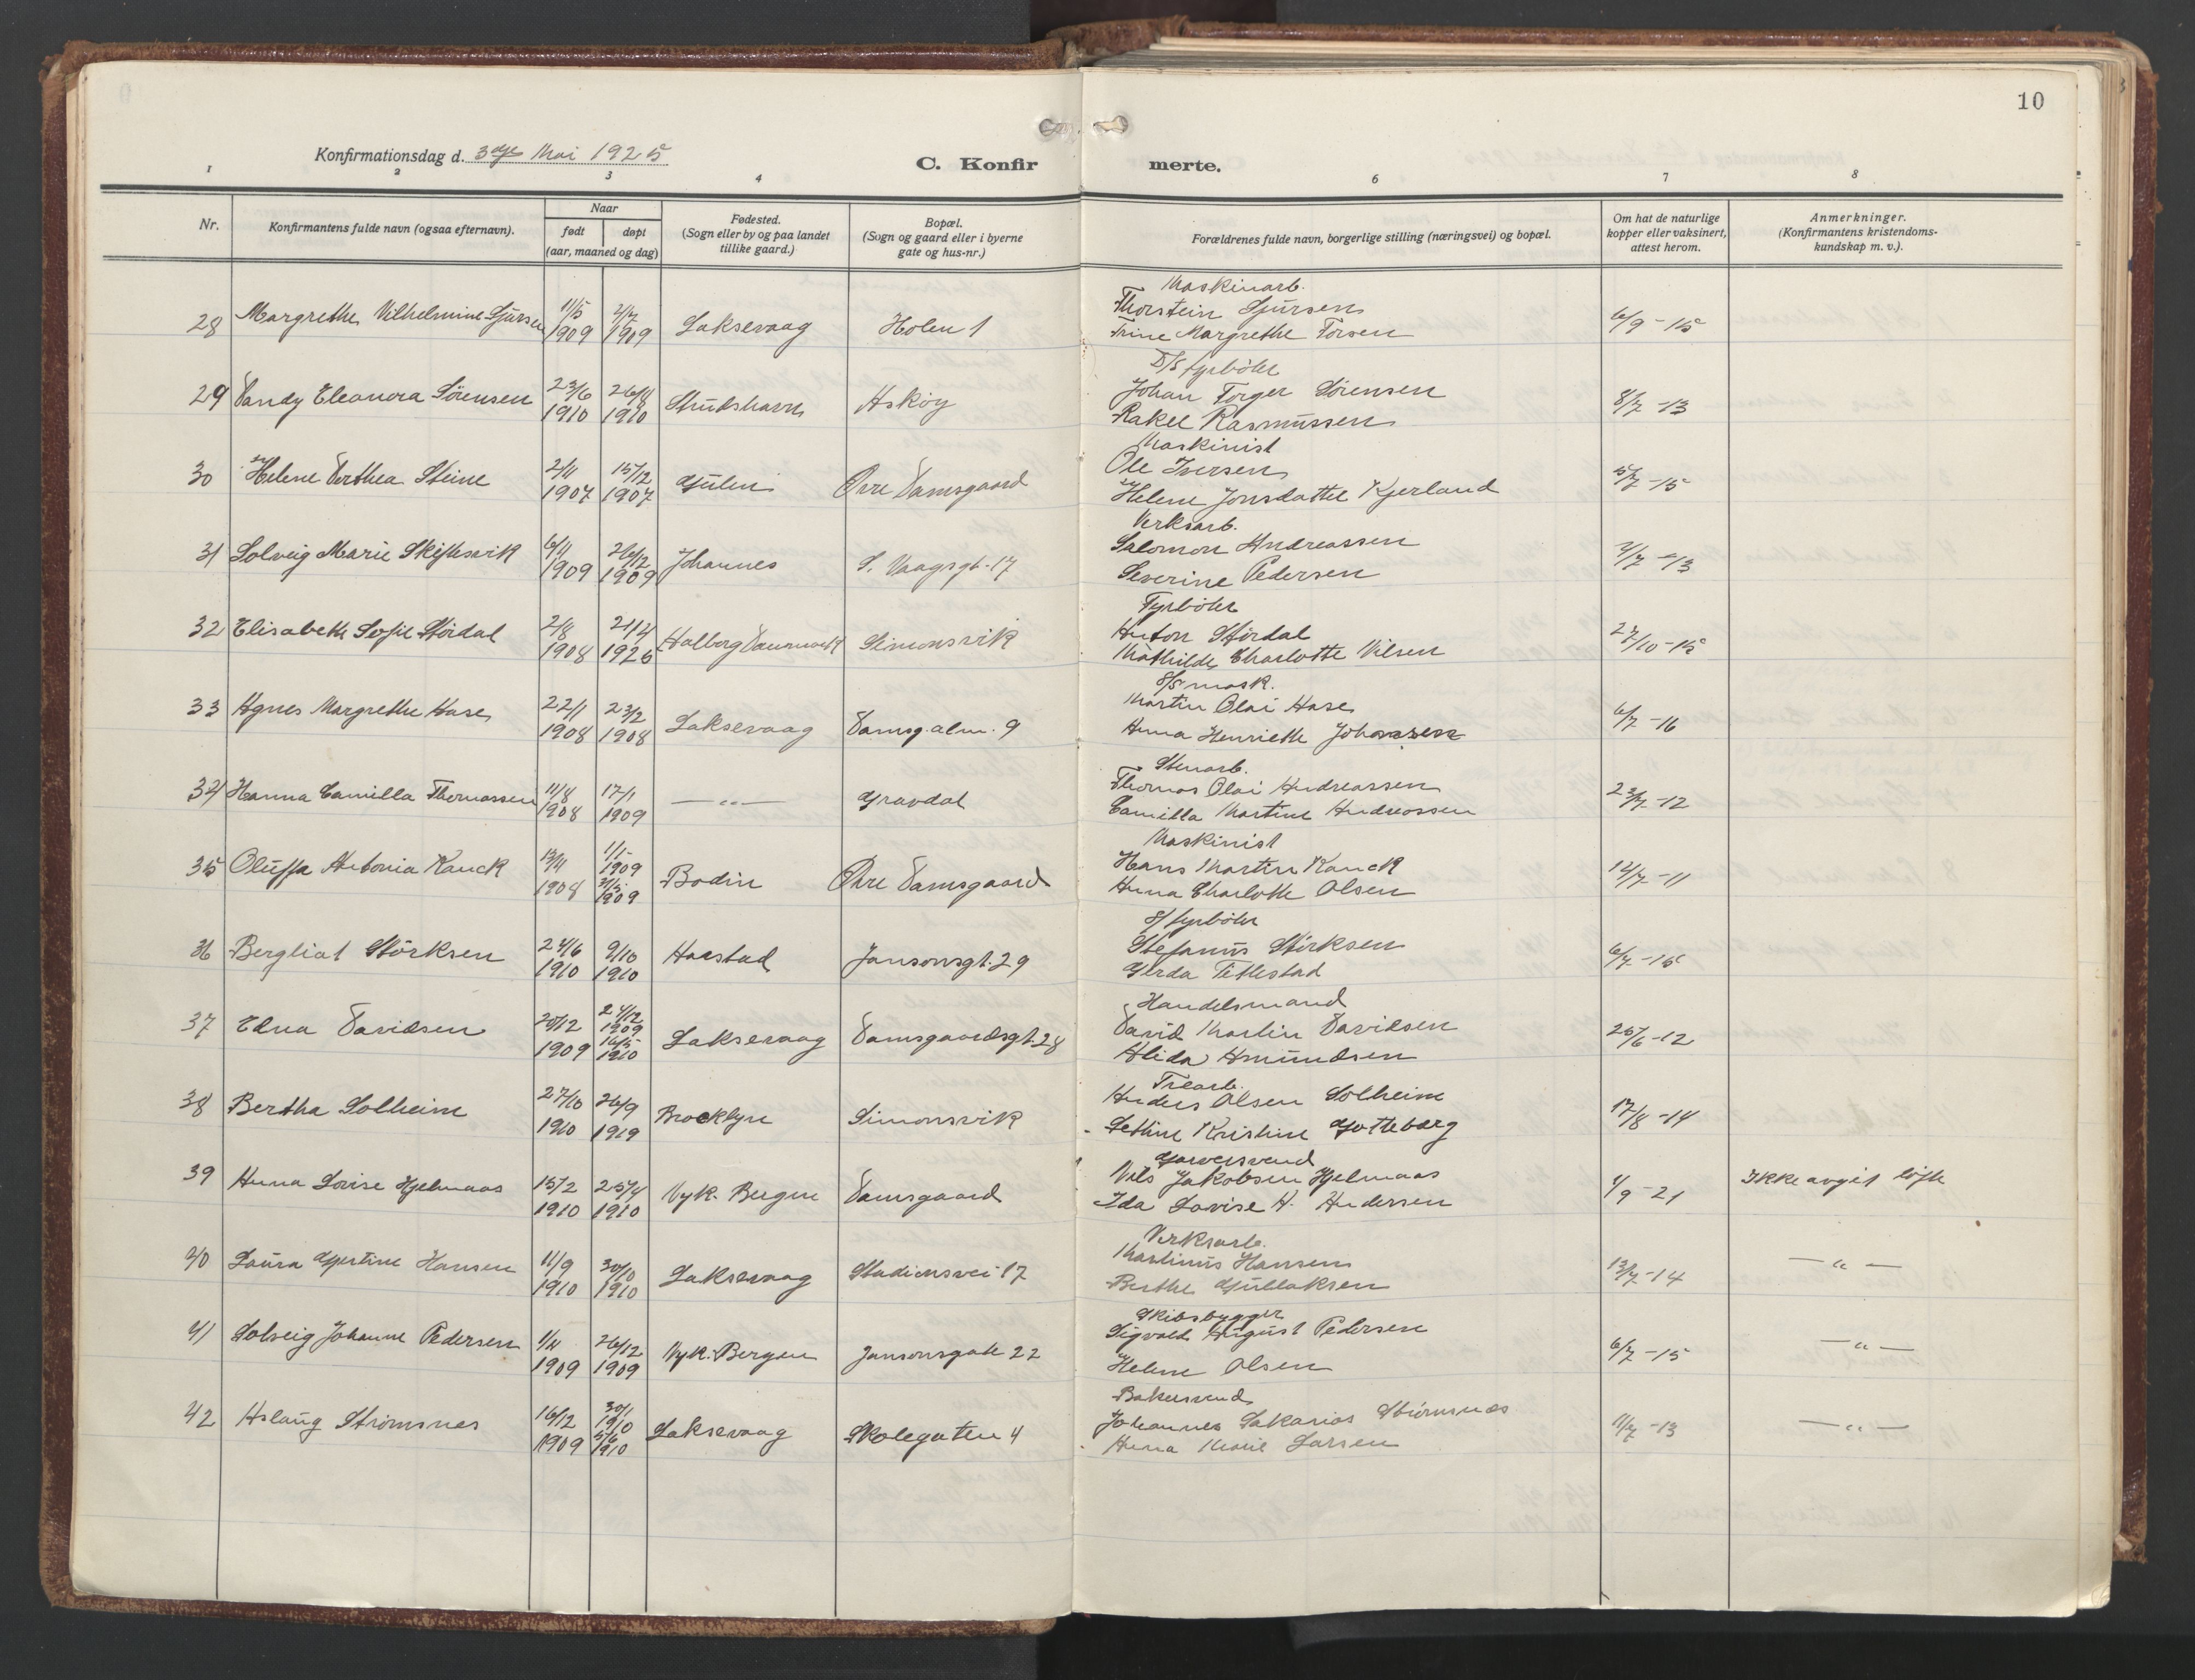 10
Konfirmationsdag d. 3dje Mai 1925
C. Konfir merte.
1 2 3 4 6 7 8
Nr.
Konfirmantens fulde navn (ogsaa efternavn).
Naar
født døpt
(aar, maaned og dag)
Fødested.
(Sogn eller by og paa landet
tillike gaard.)
Bopæl.
(Sogn og gaard eller i byerne
gate og hus-nr.)
Forældrenes fulde navn, borgerlige stilling (næringsvei) og bopæl.
Om hat de naturlige
kopper eller vaksinert,
attest herom.
Anmerkninger.
(Konfirmantens kristendoms-
kundskap m. v.).
Maskinarb.
28 Margrethe Vilhelmine Sjursen 11/5 2/7 Thorstein Sjursen
1909 1909 Laksevaag Holen 1 Trine Margrethe Torsen 6/9-15
D/S fyrbøter
29 Dandy Eleonora Sørensen 23/6 26/8 Johan Torger Sørensen
1910 1910 Strudshavn Askøy Rakel Rasmussen 8/7-13
Maskinist
30 Helene Dorthea Steine 2/11 15/12 Ole Iversen
1907 1907 Gulen Øvre Damsgaard Helene Jonsdatter Kjerland 5/7-15
Verksarb.
31 Solveig Marie Skiftesvik 6/11 26/12 Salomon Andreassen
1909 1909 Johannes S. Vaagsgt. 17 Severine Pedersen 2/7-13
Fyrbøter
32 Elisabeth Sofie Størdal 2/8 21/4 Anton Størdal
1908 1926 Aalborg Danmark Simonsvik Mathilde Charlotte Nilsen 27/10-15
S/S mask.
33 Agnes Margrethe Hase 22/1 23/2 Martin Olai Hase
1908 1908 Laksevaag Damsg. alm. 9 Anna Henriette Johansen 6/7-16
Stenarb.
34 Hanna Camilla Thomassen 11/8 17/1 Thomas Olai Andreassen
1908 1909 —"— Gravdal Camilla Martine Andreassen 23/7-12
Maskinist
35 Oluffa Antonia Kanck 13/11 1/1 1909 Hans Martin Kanck
1908 31/5 1909 Bodin Øvre Damsgaard Anna Charlotte Olsen 12/7-11
S/ fyrbøter
36 Bergliot Størksen 24/6 9/10 Stefanus Størksen
1910 1910 Harstad Jansonsgt. 29 Gerda Titlestad 6/7-15
Handelsmand
37 Edna Davidsen 20/12 24/12 1909 David Martin Davidsen
1909 16/5 1910 Laksevaag Damsgaardsgt. 28 Alida Amundsen 25/6-12
Trearb.
38 Bertha Solheim 27/10 26/9 Anders Olsen Solheim
1910 1919 Brooklyn Simonsvik Lettine Kristine Gotteberg 17/8-14
Garversvend
39 Anna Lovise Hjelmaas 15/2 25/4 Nils Jakobsen Hjelmaas
1910 1910 Nyk. Bergen Damsgaard Ida Lovise H. Andersen 1/9-21 Ikke avgit løfte
Verksarb.
40 Laura Gjertine Hansen 11/9 30/10 Martinus Hansen
1910 1910 Laksevaag Stadionsvei 17 Berthe Gullaksen 13/7-14 —"—
Skibsbygger
41 Solveig Johanne Pedersen 1/11 26/12 Sigvald August Pedersen
1909 1909 Nyk. Bergen Jansonsgate 22 Helene Olsen 6/7-15 —"—
Bakersvend
42 Aslaug Strømsnes 16/12 30/1 1910 Johannes Sakarias Strømsnes
1909 5/6 1910 Laksevaag Skolegaten 4 Anna Marie Larsen 11/7-13 —"—